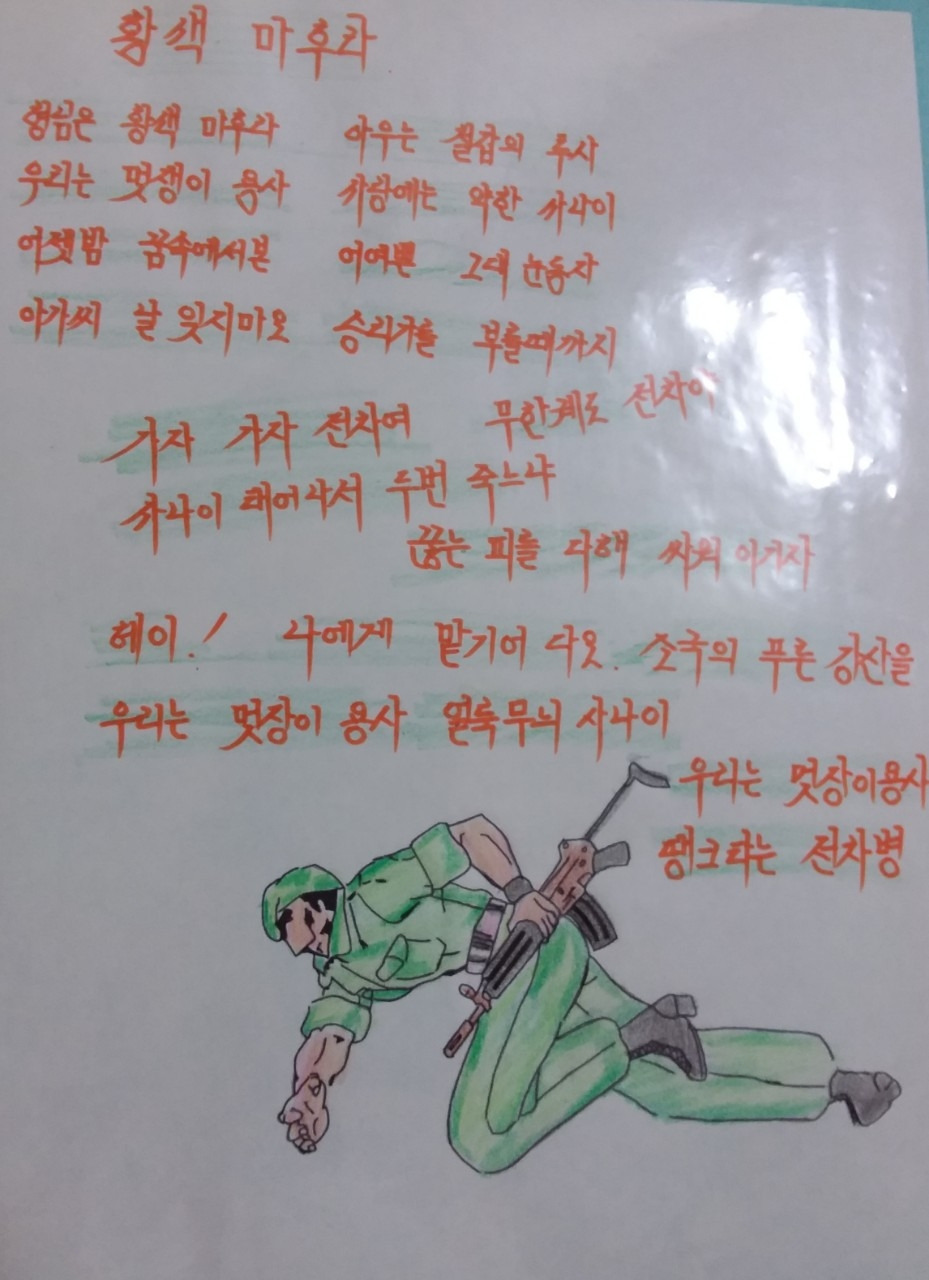 황색 마후라
형님은 황색 마후라 아우는 철갑의 투사
우리는 멋쟁이 용사 사랑에는 약한 사나이
어젯밤 꿈속에서본 어여쁜 그대 눈동자
아가씨 날 잊지마오 승리가를 부를때까지
가자 가자 전차여 무한궤도 전차야
사나이 태어나서 두번 죽느냐
끓는 피를 다해 싸워 이기자
헤이! 나에게 맡기어 다오. 조국의 푸른 강산을
우리는 멋장이 용사 얼룩무늬 사나이
우리는 멋장이용사
땡크타는 전차병